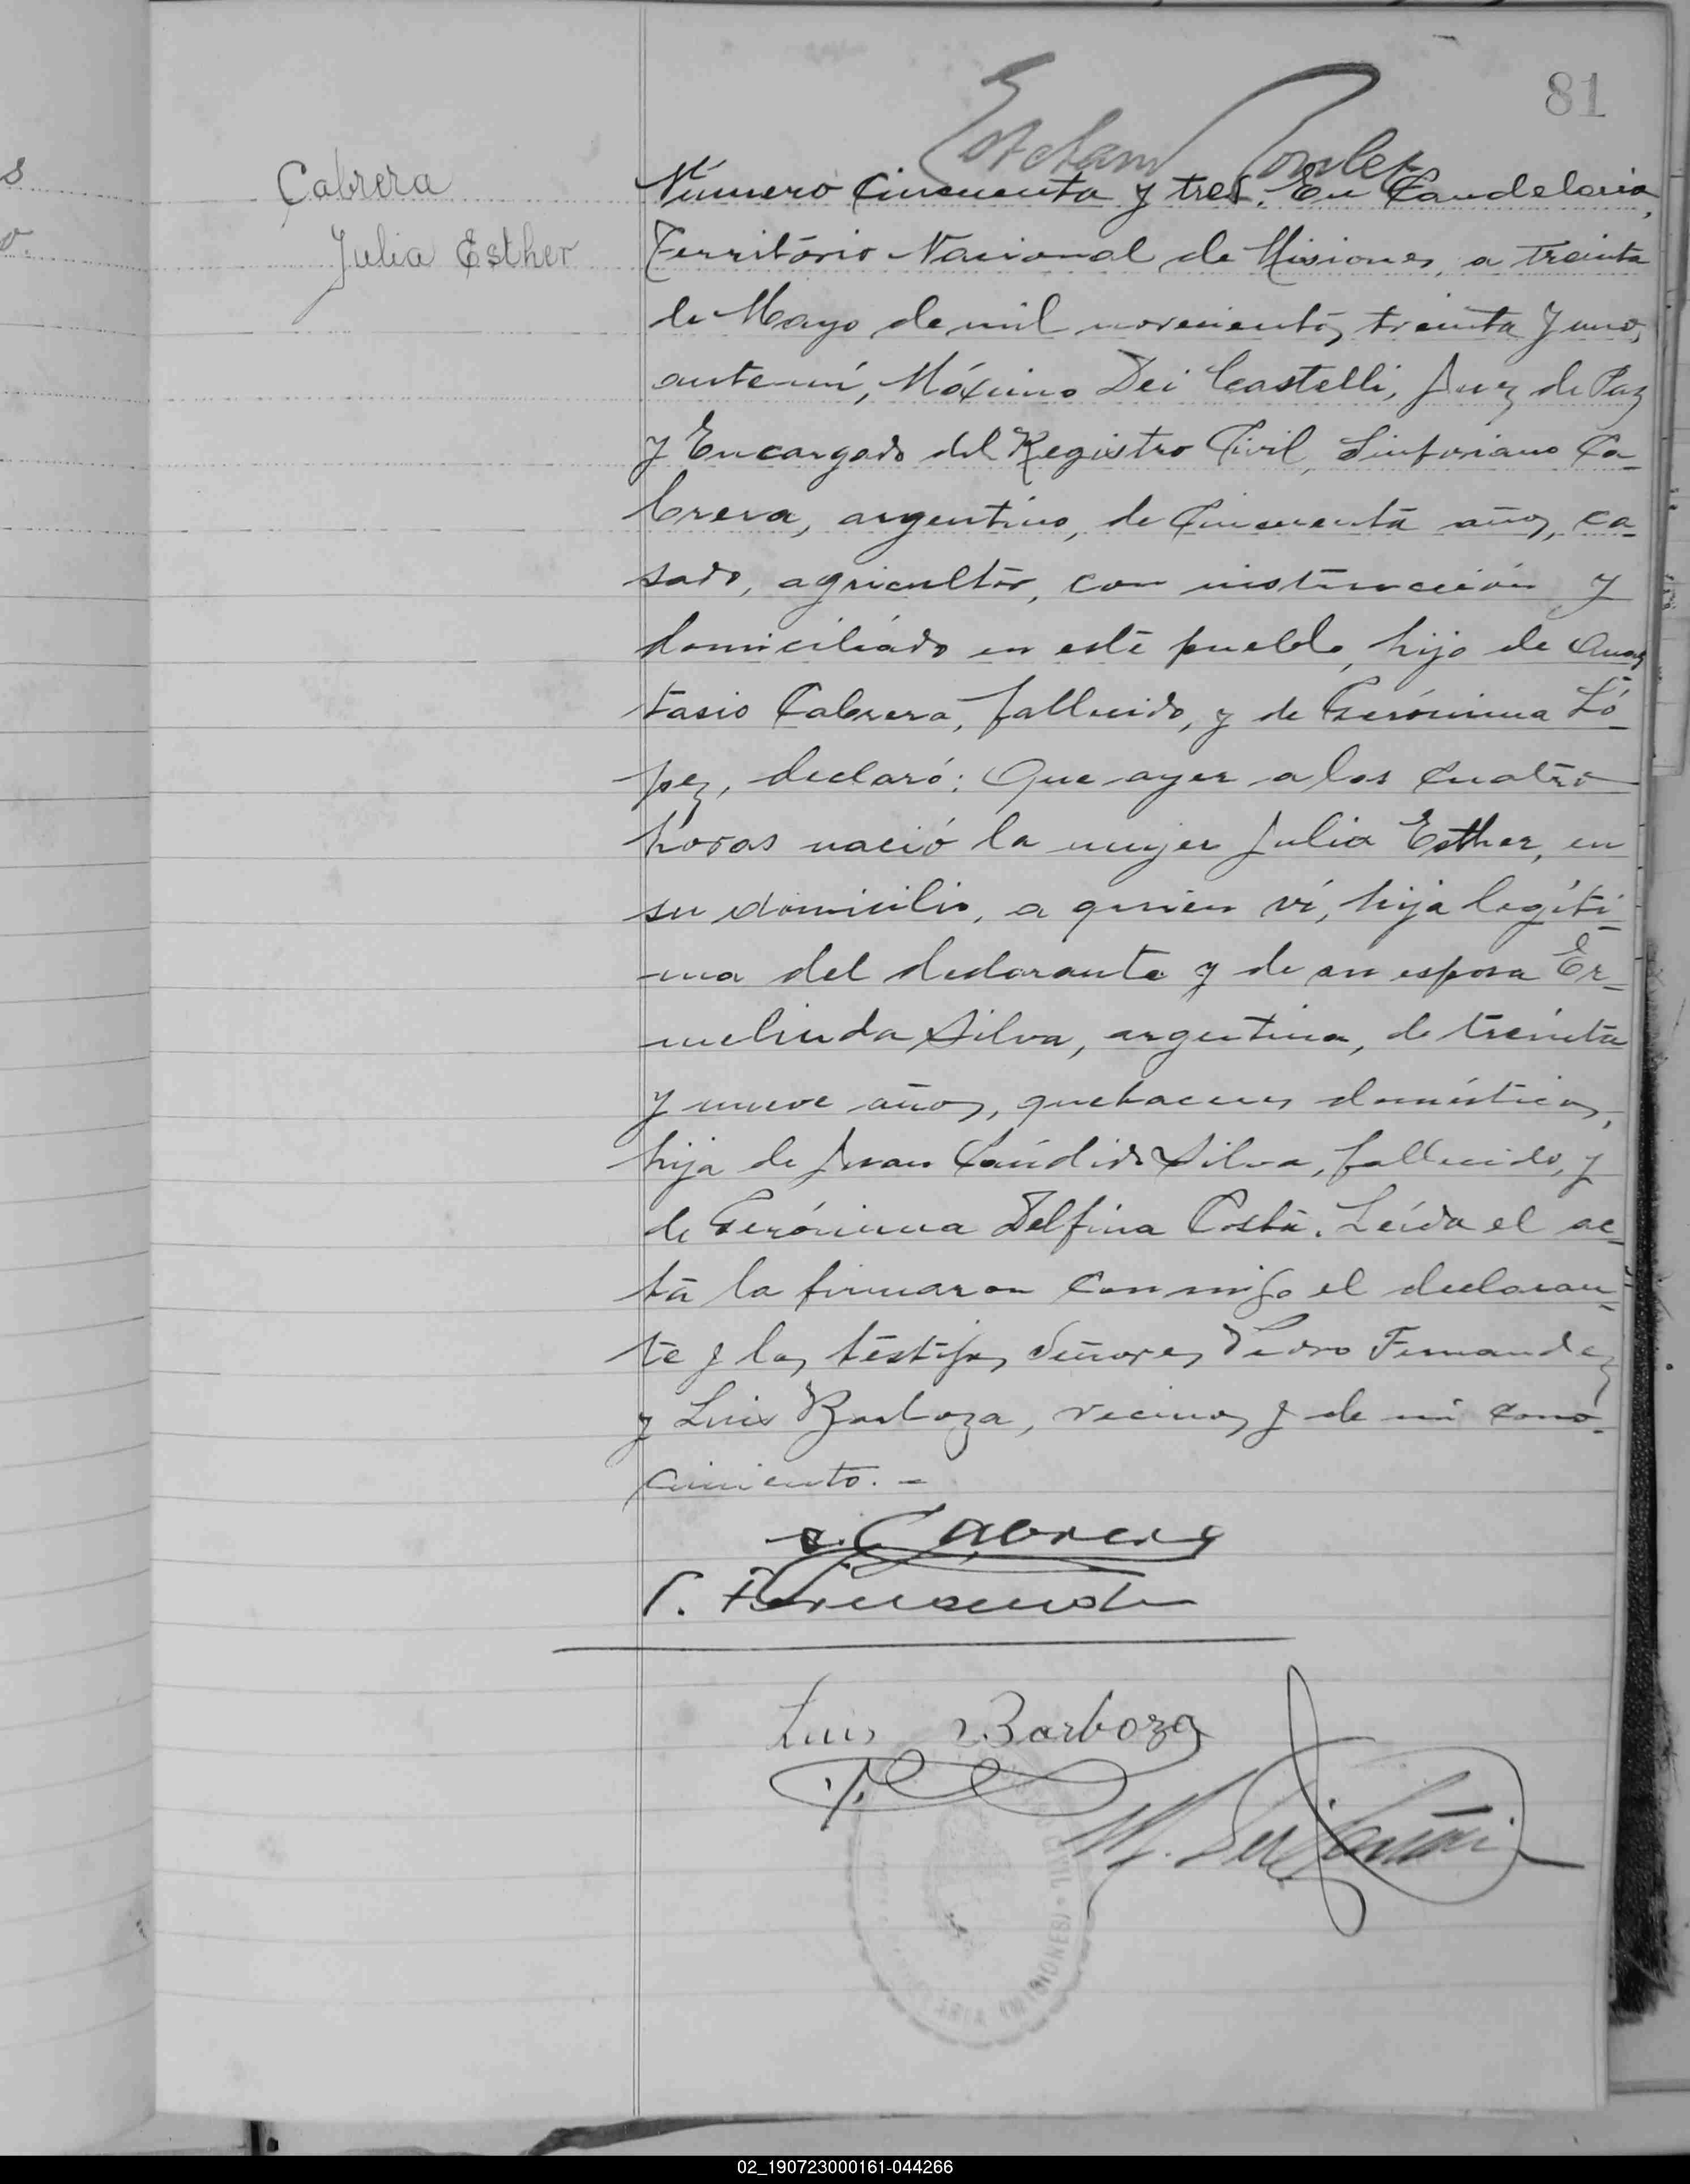 81
Cabrera
Julia Esther
Número Cincuenta y tres. En Candelaria,
Território Nacional de Misiones, a treinta
de Mayo de mil novecientos treinta y uno,
ante mí, Máximo Dei Castelli, Juez de Paz
y Encargado del Registro Civil, Sinforiano Ca-
brera, argentino, de Cincuenta años, ca-
sado, agricultor, con instrucción y
domiciliado en este pueblo, hijo de Anas-
tasio Cabrera, fallecido, y de Gerónima Ló-
pez, declaró: Que ayer a las cuatro
horas nació la mujer Julia Esther, en
su domicilio, a quien ví, hija legíti-
ma del declarante y de su esposa Er-
melinda Silva, argentina, de treinta
y nueve años, quehaceres domésticos,
hija de Juan Cándido Silva, fallecido, y
de Gerónima Delfina Costa. Leída el ac-
ta la firmaron conmigo el declaran-
te y los testigos Señores Pedro Fernandez
y Luis Barboza, vecinos y de mi cono-
cimiento. -
S. Cabrera
P. Fernandez
Luis Barboza
M. Dei Castelli
(MISIONES)
02_190723000161-044266